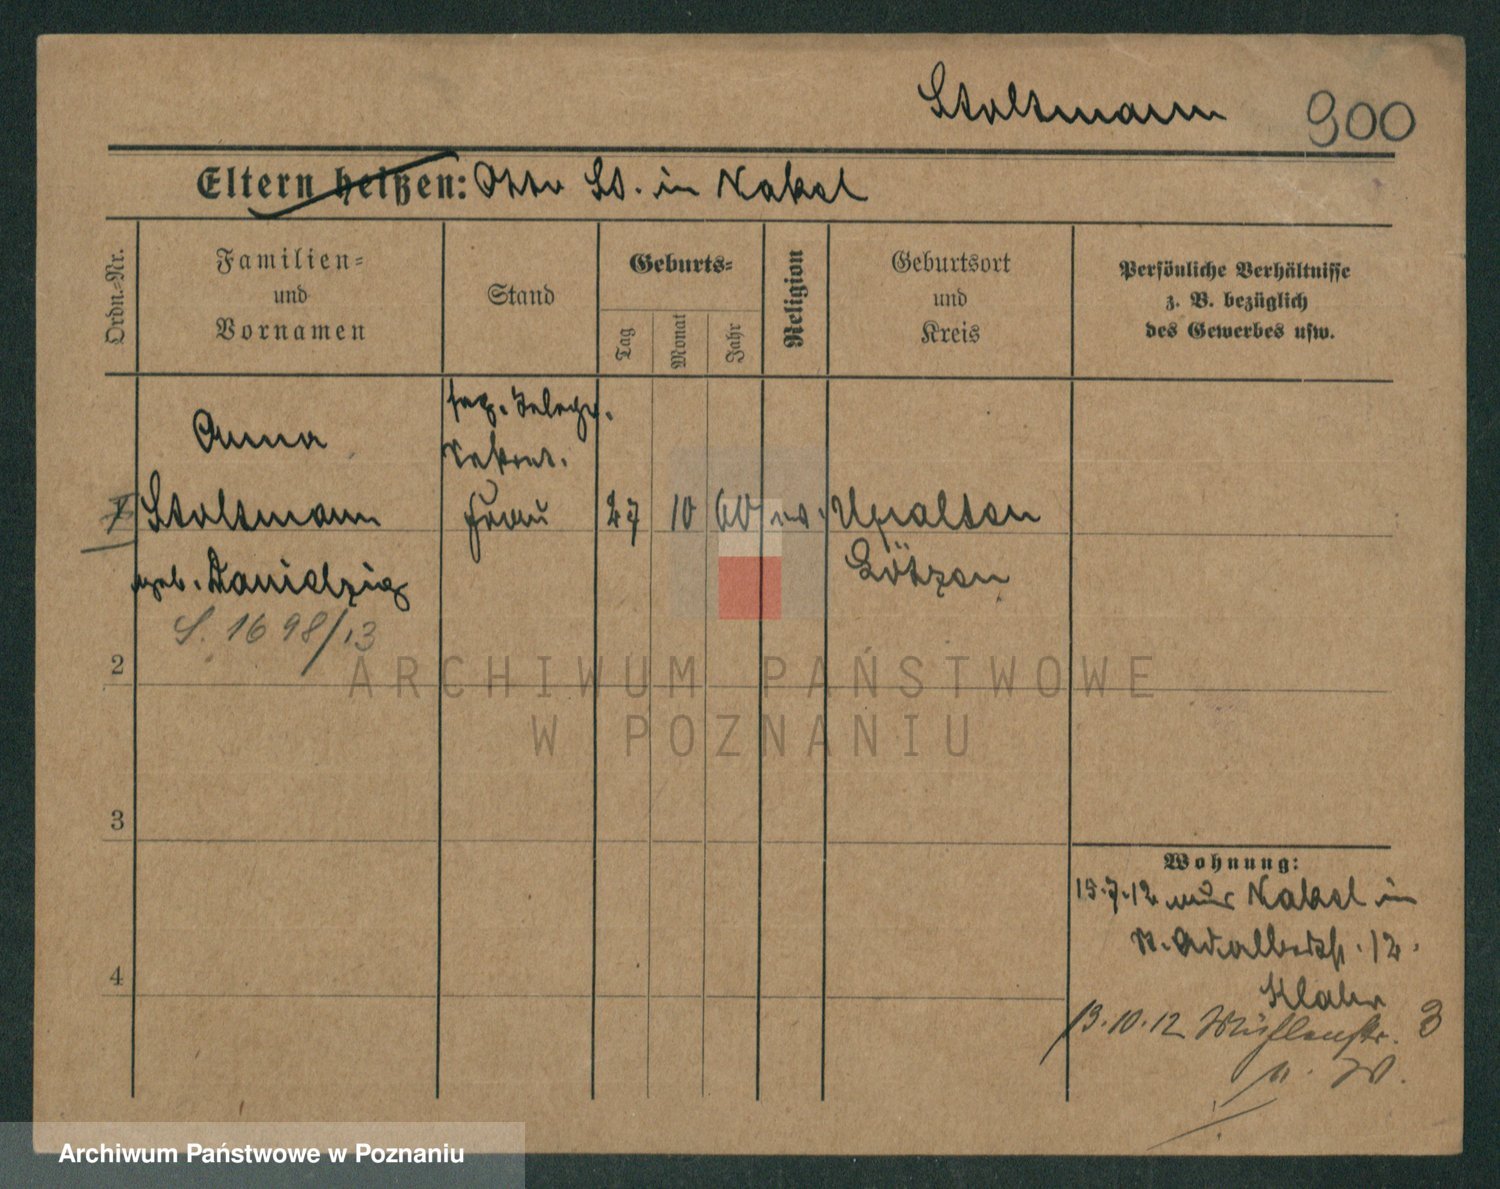 Stoltzmann 900
Eltern heißen: Otto St. in Nakel
Ordn.-Nr.
Familien-
und
Vornamen
Stand
Geburts-
Tag
Monat
Jahr
Religion
Geburtsort
und
Kreis
Persönliche Verhältnisse
z. B. bezüglich
des Gewerbes usw.
Anna
Stoltzmann
geb. Danielzig
S. 1698/13
Telegr.
Frau
27 10 60 ev. Upalten
Lötzen
2
3
4
Wohnung:
15.7.12 aus Nakel in
St. Adalbertstr. 12.
13.10.12 str. 3
ARCHIWUM PAŃSTWOWE
W POZNANIU
Archiwum Państwowe w Poznaniu